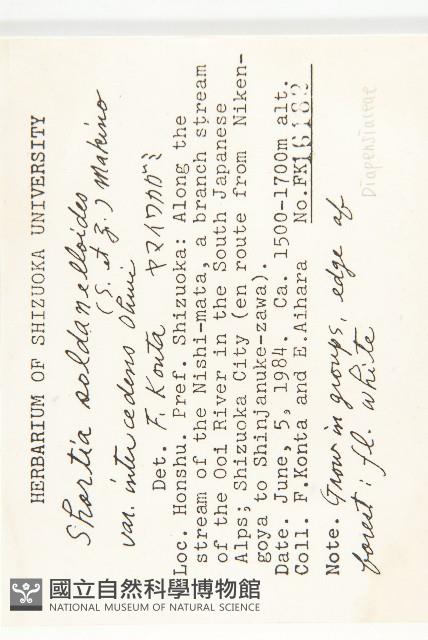 HERBARIUM OF SHIZUOKA UNIVERSITY
Shortia soldanelloides
(S. et Z.) Makino
var. intercedens Ohwi
Det. F. Konta ヤマイワカガミ
Loc. Honshu. Pref. Shizuoka: Along the
stream of the Nishi-mata, a branch stream
of the Ooi River in the South Japanese
Alps; Shizuoka City (en route from Niken-
goya to Shinjanuke-zawa).
Date. June, 5, 1984. Ca. 1500-1700m alt.
Coll. F.Konta and E.Aihara No.FK16182
Note. Grow in groups, edge of
forest; fl. white
Diapensiaceae
國立自然科學博物館
NATIONAL MUSEUM OF NATURAL SCIENCE